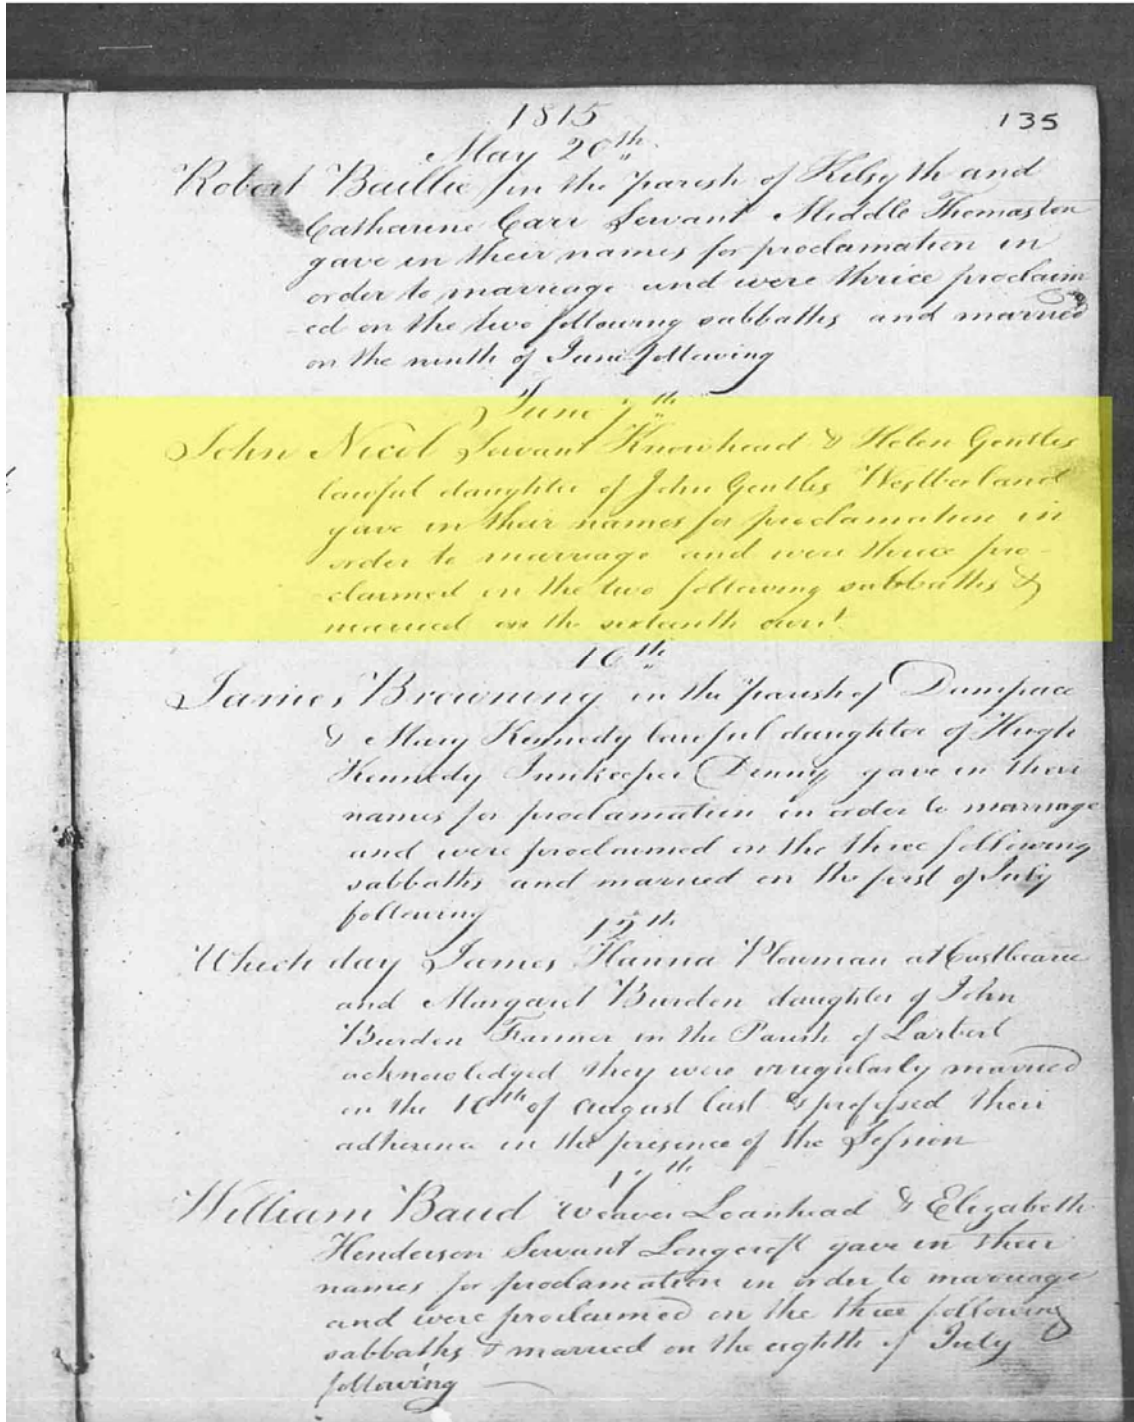 1815
135
May 20th
Robert Baillie in the parish of Kilsyth and
Catharine Carr Servant Middle Thomaston
gave in their names for proclamation in
order to marriage and were thrice proclaim
ed on the two following sabbaths and married
on the ninth of June following
June 7th
John Nicol Servant Knowhead & Helen Gentles
lawful daughter of John Gentles Westberland
gave in their names for proclamation in
order to marriage and were thrice pro-
claimed on the two following sabbaths &
married on the sixteenth curt
16th
James Browning in the parish of Dunipace
& Mary Kennedy lawful daughter of Hugh
Kennedy Innkeeper Denny gave in their
names for proclamation in order to marriage
and were proclaimed on the three following
sabbaths and married on the first of July
following
17th
Which day James Hanna Plowman at
and Margaret Burden daughter of John
Burden Farmer in the Parish of Larbert
acknowledged they were irregularly married
on the 10th of august last & professed their
adherence in the presence of the Session
17th
William Baud weaver Loanhead & Elizabeth
Henderson Servant Longcroft gave in their
names for proclamation in order to marriage
and were proclaimed on the three following
sabbaths & married on the eighth of July
following